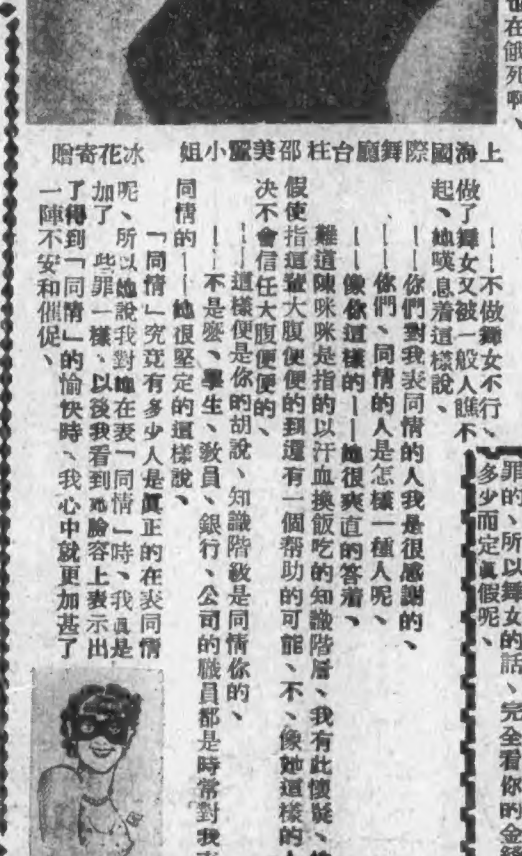 在餓死啊、
罪的、所以舞女的話、完全看你的金錢
多少而定眞假呢、
上海國際舞廳台柱邵美麗小姐 冰花寄贈
——不做舞女不行、
做了舞女又被一般人瞧不
起、她嘆息着這樣說、
——你們對我表同情的人我是很感謝的、
——你們、同情的人是怎樣一種人呢、
——像你這樣的——她很爽直的答着、
難道陳咪咪是指的以汗血換飯吃的知識階層、我有此懷疑、
假使指這輩大腹便便的到還有一個帮助的可能、不、像她這樣的人
决不會信任大腹便便的、
——這樣便是你的胡說、知識階級是同情你的、
——不是麽、學生、敎員、銀行、公司的職員都是時常對我表
同情的——她很堅定的這樣說、
「同情」究竟有多少人是眞正的在表同情
呢、所以她說我對她在表「同情」時、我眞是
加了一些罪一樣、以後我看到她臉容上表示出
了得到「同情」的愉快時、我心中就更加甚了
一陣不安和催促、